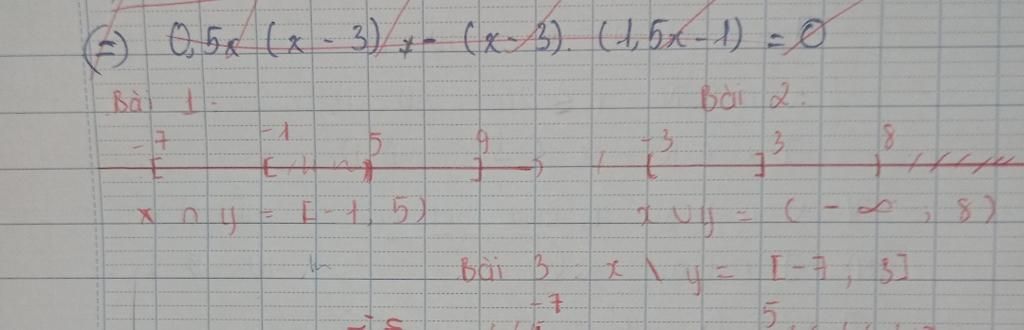 (=) 0,5x (x - 3) - (x - 3). (1,5x - 1) = 0
Bài 1.
Bài 2.
-7 -1 5 9
-3 3 8
x ∩ y = [-1, 5)
x ∪ y = (-∞, 8)
Bài 3 x \ y = [-7, 3]
-7 5